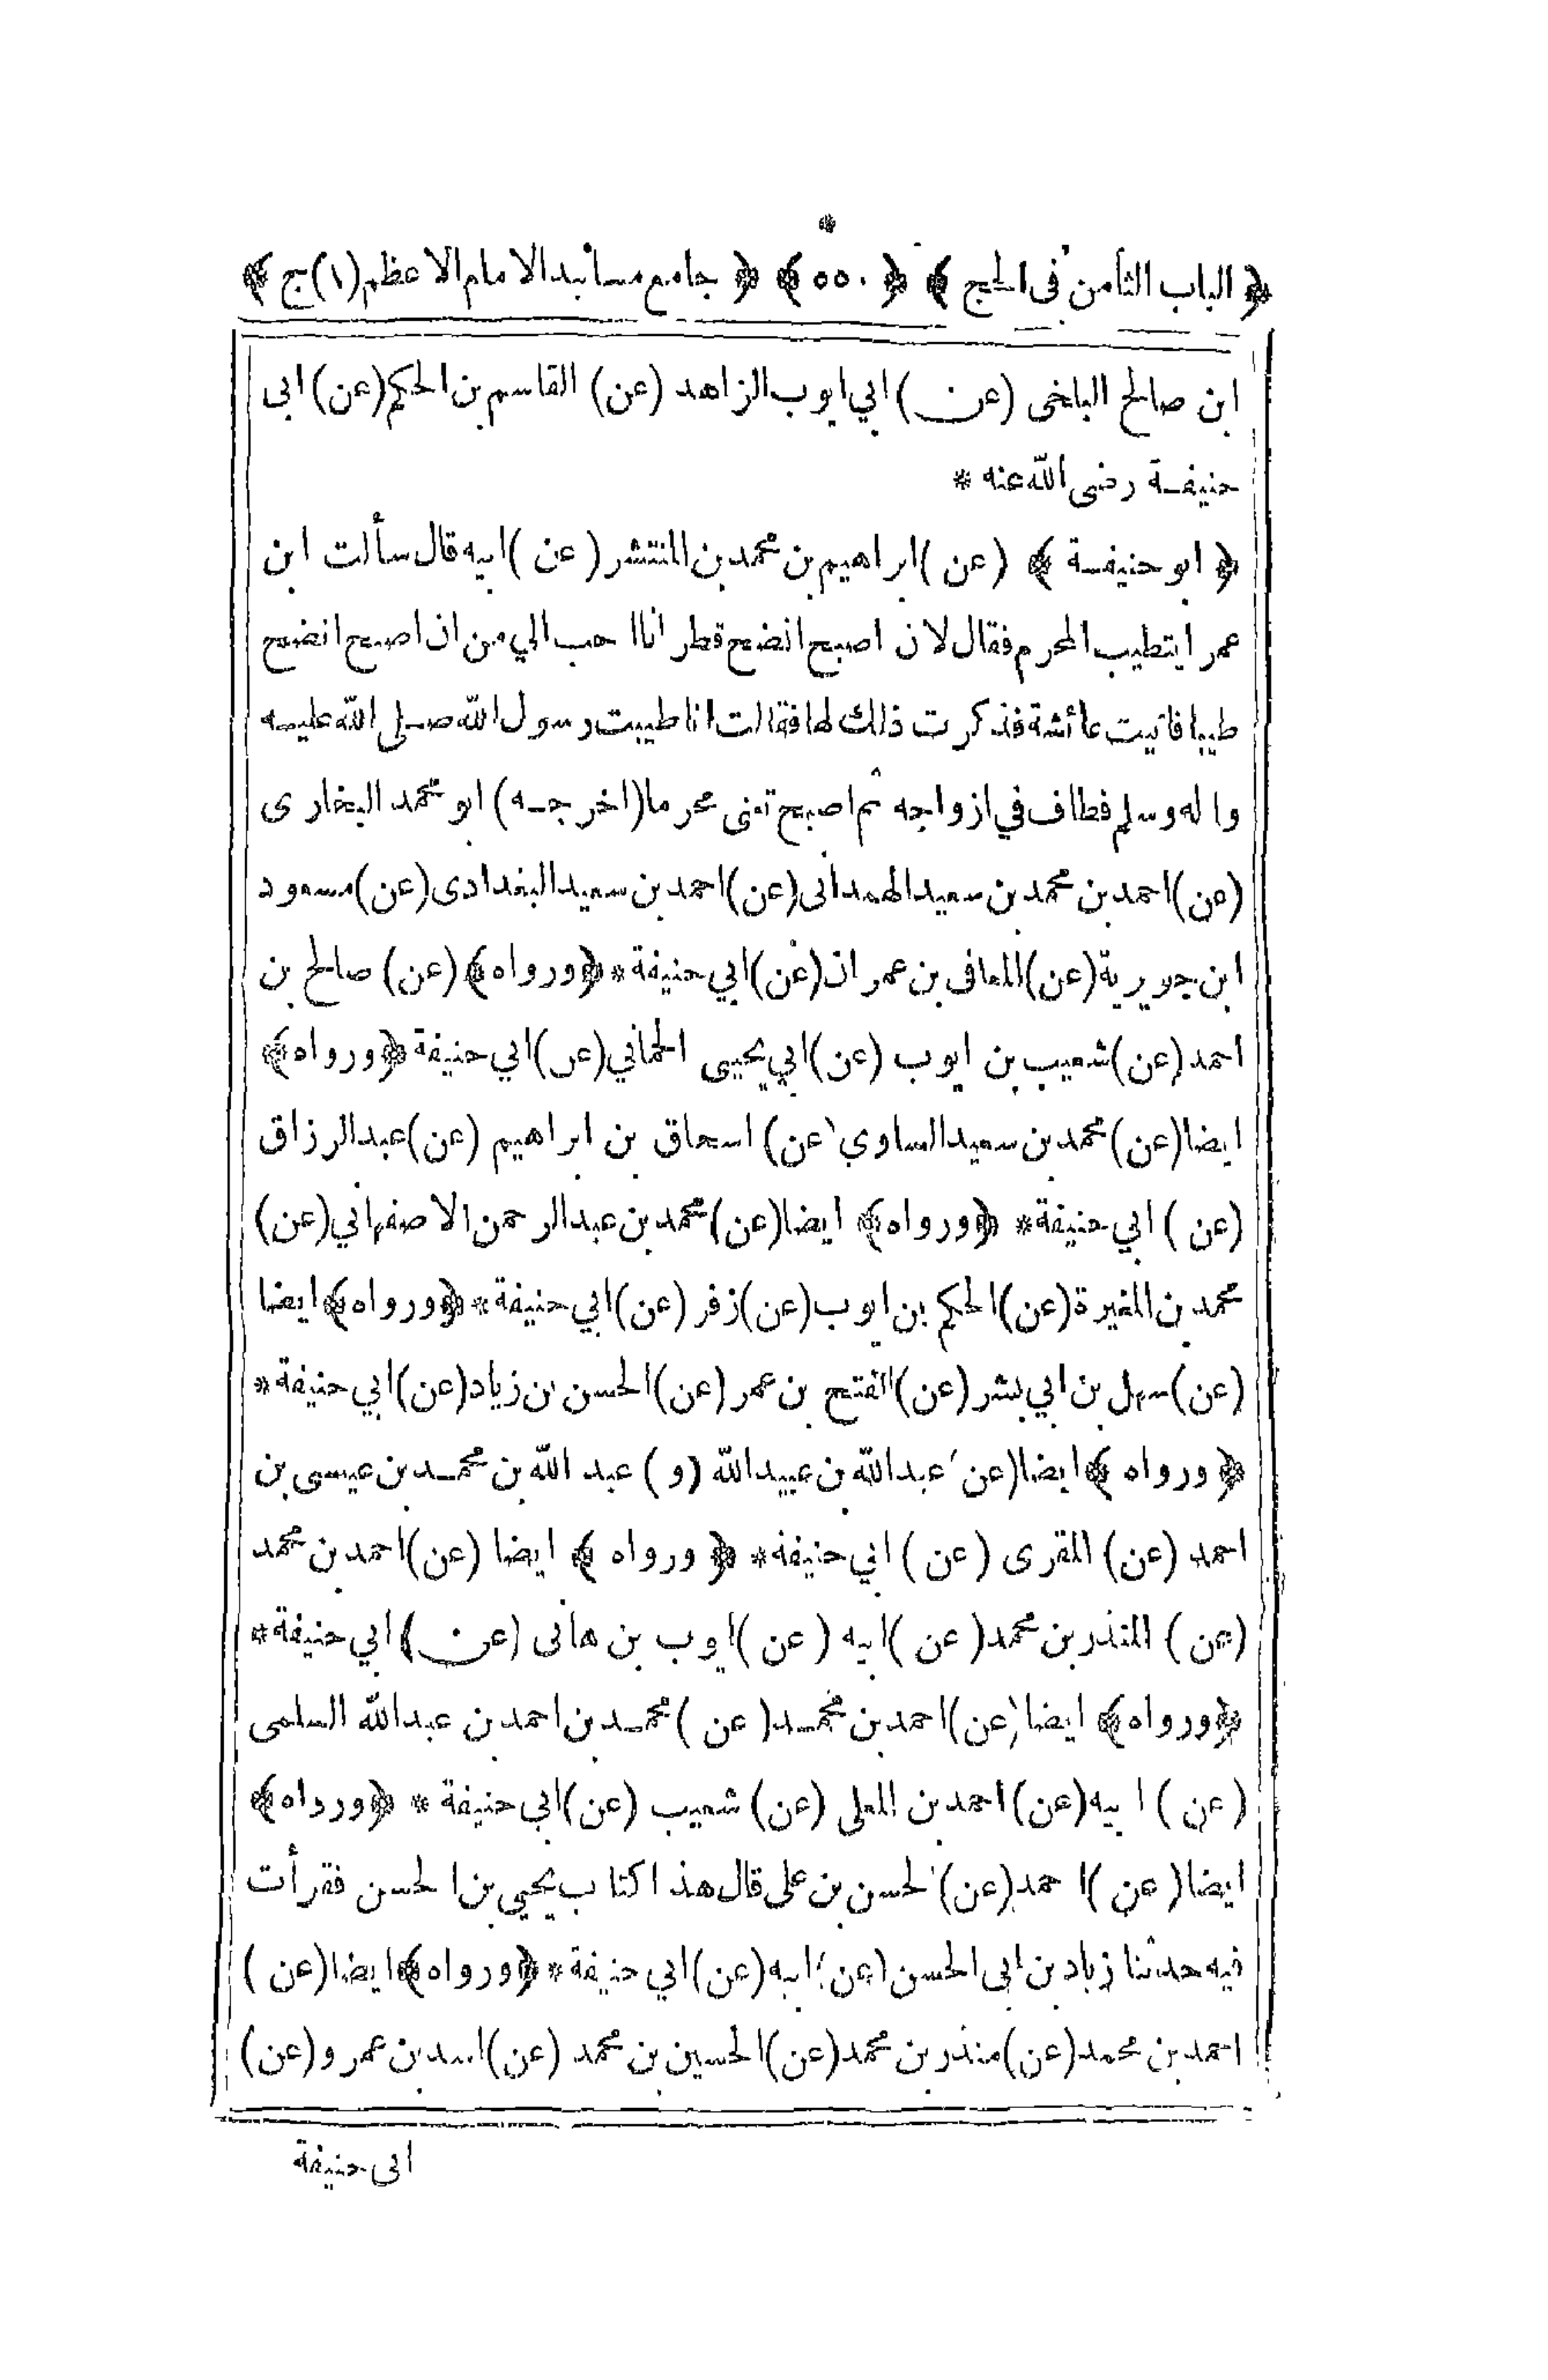 ﴿ الباب الثامن فى الحج ﴾ ﴿ ٥٥٠ ﴾ ﴿ جامع مسانيد الامام الاعظم (١) ج ﴾
ابن صالح البلخى (عن) ابي ايوب الزاهد (عن) القاسم بن الحكم (عن) ابى
حنيفة رضى الله عنه *
﴿ ابو حنيفة ﴾ (عن) ابراهيم بن محمد بن المنتشر (عن) ابيه قال سألت ابن
عمر ايتطيب المحرم فقال لان اصبح انضح قطرانا احب الي من ان اصبح انضح
طيبا فاتيت عائشة فذكرت ذلك لها فقالت انا طيبت رسول الله صلى الله عليه
واله وسلم فطاف في ازواجه ثم اصبح تعنى محرما (اخرجه) ابو محمد البخارى
(عن) احمد بن محمد بن سعيد الهمدانى (عن) احمد بن سعيد البغدادى (عن) مسعود
ابن جويرية (عن) المعافى بن عمران (عن) ابي حنيفة * ﴿ورواه﴾ (عن) صالح بن
احمد (عن) شعيب بن ايوب (عن) ابي يحيى الحمانى (عن) ابي حنيفة ﴿ورواه﴾
ايضا (عن) محمد بن سعيد الساوي (عن) اسحاق بن ابراهيم (عن) عبد الرزاق
(عن) ابي حنيفة * ﴿ورواه﴾ ايضا (عن) محمد بن عبد الرحمن الاصفهانى (عن)
محمد بن المغيرة (عن) الحكم بن ايوب (عن) زفر (عن) ابي حنيفة * ﴿ورواه﴾ ايضا
(عن) سهل بن ابي بشر (عن) الفتح بن عمر (عن) الحسن بن زياد (عن) ابي حنيفة *
﴿ ورواه ﴾ ايضا (عن) عبد الله بن عبيد الله (و) عبد الله بن محمد بن عيسى بن
احمد (عن) المقرى (عن) ابي حنيفة * ﴿ ورواه ﴾ ايضا (عن) احمد بن محمد
(عن) المنذر بن محمد (عن) ابيه (عن) ايوب بن هانى (عن) ابي حنيفة *
﴿ورواه﴾ ايضا (عن) احمد بن محمد (عن) محمد بن احمد بن عبد الله السلمى
(عن) ابيه (عن) احمد بن المعلى (عن) شعيب (عن) ابى حنيفة * ﴿ورواه﴾
ايضا (عن) احمد (عن) الحسن بن على قال هذا كتاب يحيي بن الحسن فقرأت
فيه حدثنا زياد بن ابى الحسن (عن) ابيه (عن) ابي حنيفة * ﴿ورواه﴾ ايضا (عن)
احمد بن محمد (عن) منذر بن محمد (عن) الحسين بن محمد (عن) اسد بن عمرو (عن)
ابى حنيفة